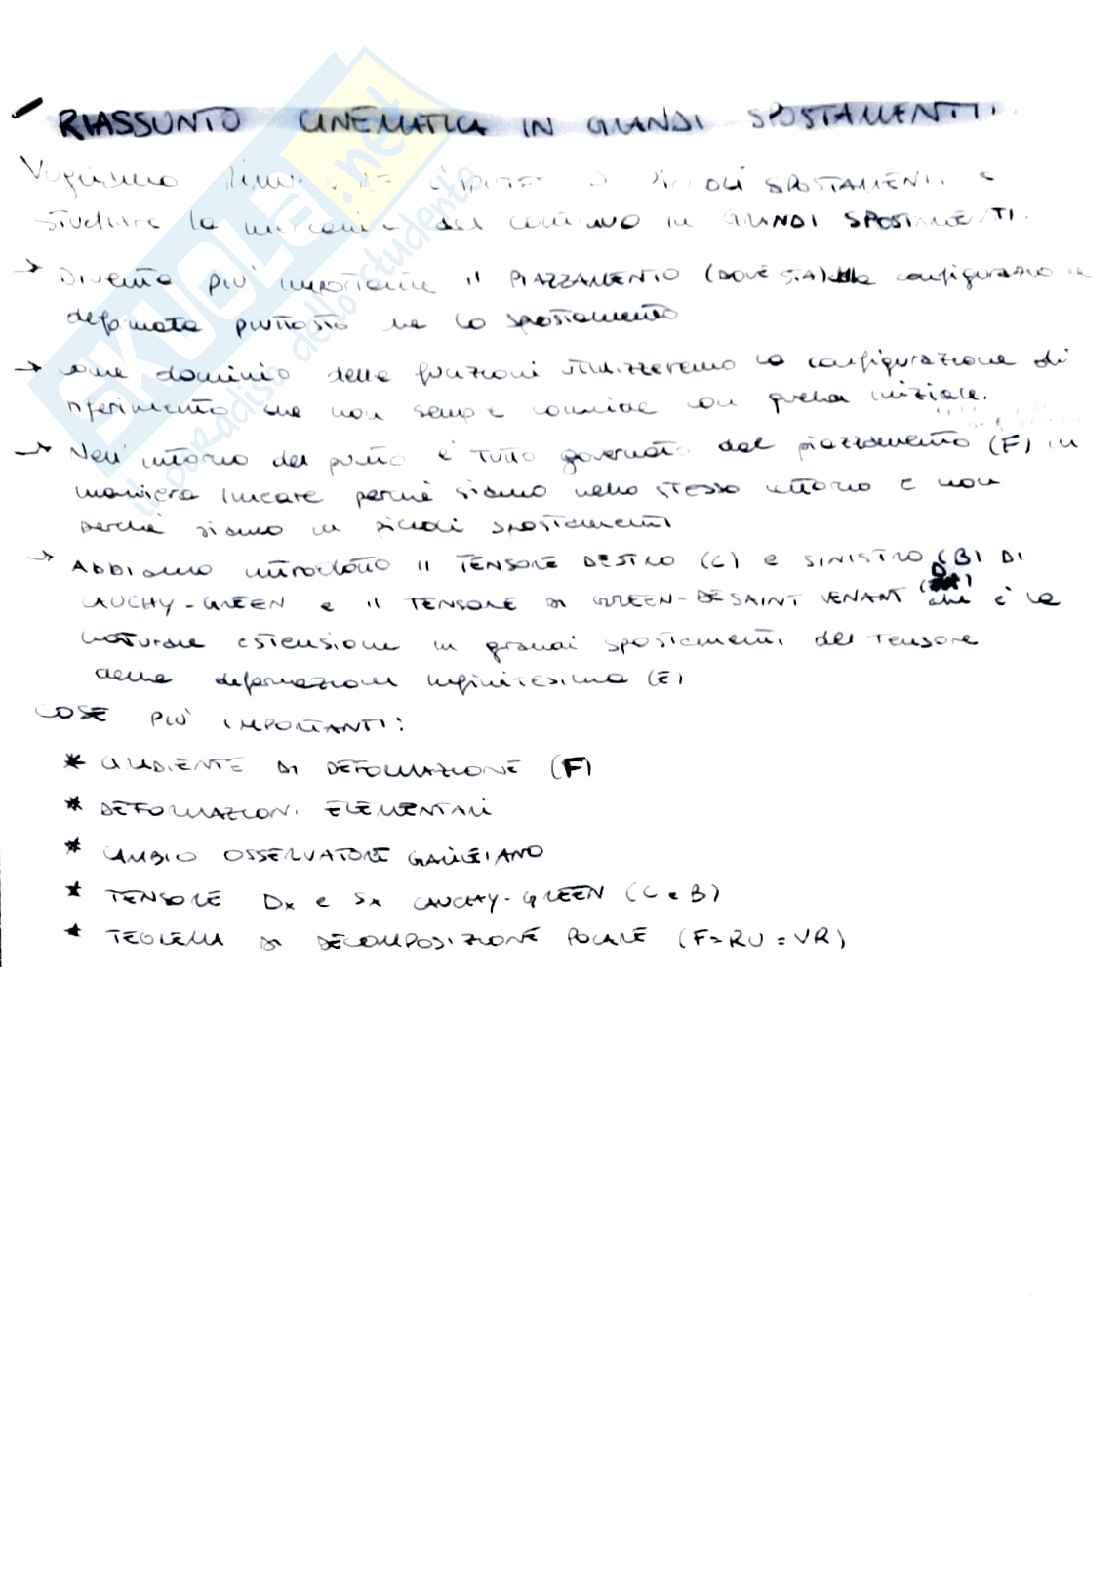 RIASSUNTO CINEMATICA IN GRANDI SPOSTAMENTI.
Vogliamo SPOSTAMENTI e
studiare la meccanica del continuo in GRANDI SPOSTAMENTI.
→ Diventa più importante il PIAZZAMENTO (DOVE STA) della configurazione
deformata piuttosto che lo spostamento
→ come dominio delle funzioni utilizzeremo la configurazione di
riferimento che non sempre coincide con quella iniziale.
→ Nell'intorno del punto è tutto governato dal piazzamento (F) in
maniera lineare perché siamo nello stesso intorno e non
perché siamo in piccoli spostamenti
→ ABBiamo introdotto il TENSORE DESTRO (C) e SINISTRO (B) DI
CAUCHY-GREEN e il TENSORE DI GREEN-DE SAINT VENANT (D) che è la
naturale estensione in grandi spostamenti del tensore
delle deformazioni infinitesime (E)
COSE PIÙ IMPORTANTI:
* GRADIENTE DI DEFORMAZIONE (F)
* DEFORMAZIONI ELEMENTARI
* CAMBIO OSSERVATORE GALILEIANO
* TENSORE Dx e Sx CAUCHY-GREEN (C e B)
* TEOREMA DI DECOMPOSIZIONE POLARE (F=RU=VR)
SKUOLA.net
il paradiso dello studente